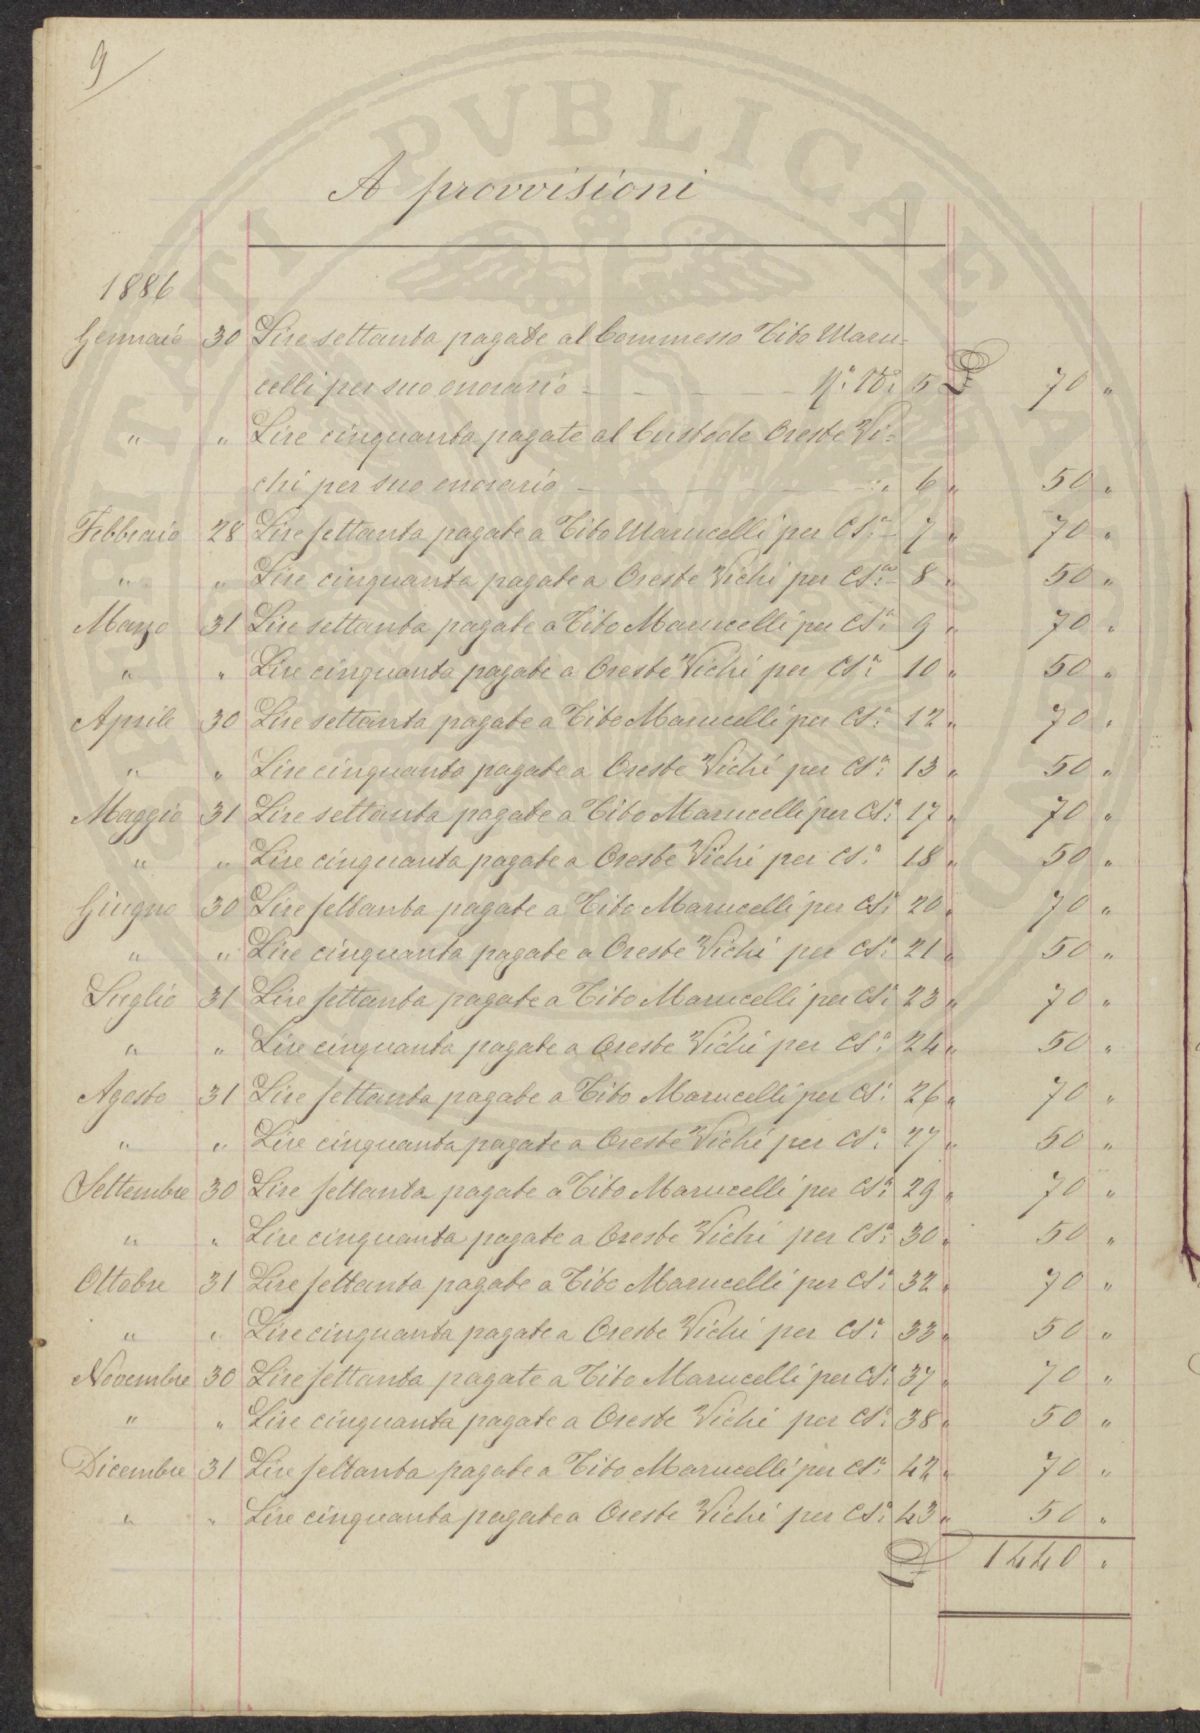 9
A provvisioni
1886
Gennaio 30 Lire settanta pagate al Commesso Tito Maru=
celli per suo onorario - - - - - 5 70 "
" " Lire cinquanta pagate al Custode Oreste Vi=
chi per suo onorario " 6 " 50 "
Febbraio 28 Lire settanta pagate a Tito Marucelli per Cs.a 7 " 70 "
" " Lire cinquanta pagate a Oreste Vichi per Cs.a 8 " 50 "
Marzo 31 Lire settanta pagate a Tito Marucelli per Cs.a 9 " 70 "
" " Lire cinquanta pagate a Oreste Vichi per Cs.a 10 " 50 "
Aprile 30 Lire settanta pagate a Tito Marucelli per Cs.a 12 " 70 "
" " Lire cinquanta pagate a Oreste Vichi per Cs.a 13 " 50 "
Maggio 31 Lire settanta pagate a Tito Marucelli per Cs.a 17 " 70 "
" " Lire cinquanta pagate a Oreste Vichi per Cs.a 18 " 50 "
Giugno 30 Lire settanta pagate a Tito Marucelli per Cs.a 20 " 70 "
" " Lire cinquanta pagate a Oreste Vichi per Cs.a 21 " 50 "
Luglio 31 Lire settanta pagate a Tito Marucelli per Cs.a 23 " 70 "
" " Lire cinquanta pagate a Oreste Vichi per Cs.a 24 " 50 "
Agosto 31 Lire settanta pagate a Tito Marucelli per Cs.a 26 " 70 "
" " Lire cinquanta pagate a Oreste Vichi per Cs.a 27 " 50 "
Settembre 30 Lire settanta pagate a Tito Marucelli per Cs.a 29 " 70 "
" " Lire cinquanta pagate a Oreste Vichi per Cs.a 30 " 50 "
Ottobre 31 Lire settanta pagate a Tito Marucelli per Cs.a 32 " 70 "
" " Lire cinquanta pagate a Oreste Vichi per Cs.a 33 " 50 "
Novembre 30 Lire settanta pagate a Tito Marucelli per Cs.a 37 " 70 "
" " Lire cinquanta pagate a Oreste Vichi per Cs.a 38 " 50 "
Dicembre 31 Lire settanta pagate a Tito Marucelli per Cs.a 42 " 70 "
" " Lire cinquanta pagate a Oreste Vichi per Cs.a 43 " 50 "
1440 "